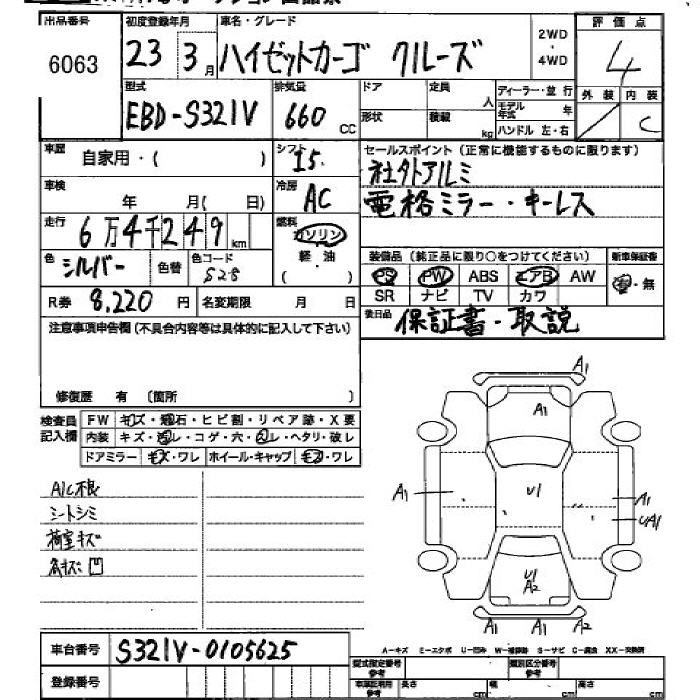 出品番号 初度登録年月 車名・グレード 評価点
6063 23 3月 ハイゼットカーゴ クルーズ 2WD・4WD 4
型式 排気量 ドア 定員 人 ディーラー・並行 外装 内装
EBD-S321V 660 CC 形状 積載 kg モデル年式 年 C
ハンドル 左・右
車歴 自家用・( ) シフト I5. セールスポイント(正常に機能するものに限ります)
社外アルミ
車検 年 月( 日) 冷房 AC 電格ミラー・キーレス
走行 6万4千249km 燃料 ガソリン
軽油
( )
装備品(純正品に限り○をつけてください) 新車保証書
色 シルバー 色替 色コード S28 PS PW ABS エアB AW 有・無
SR ナビ TV カワ
R券 8,220円 名変期限 月 日 後日品 保証書・取説
注意事項申告欄(不具合内容等は具体的に記入して下さい)
修復歴 有 (箇所 )
検査員記入欄 FW キズ・飛石・ヒビ割・リペア跡・X要
内装 キズ・汚レ・コゲ・穴・スレ・ヘタリ・破レ
ドアミラー キズ・ワレ ホイール・キャップ キズ・ワレ
A1
A1
A1 U1 A1
UA1
U1
A2
A1 A1 A2
A/C根
シートシミ
荷室キズ
各キズ凹
A-キズ M-エクボ U-凹み W-補修跡 S-サビ C-腐蝕 XX-交換済
車台番号 S321V-0105625
登録番号
型式指定番号 参考 類別区分番号 参考
車庫証明用 参考 長さ cm 幅 cm 高さ cm